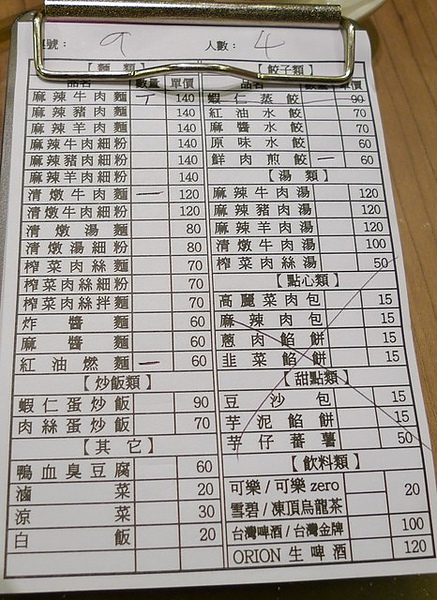 號： 9 人數： 4
【麵類】
品名 數量 單價
麻辣牛肉麵 一 140
麻辣豬肉麵 140
麻辣羊肉麵 140
麻辣牛肉細粉 140
麻辣豬肉細粉 140
麻辣羊肉細粉 140
清燉牛肉麵 一 120
清燉牛肉細粉 120
清燉湯麵 80
清燉湯細粉 80
榨菜肉絲麵 70
榨菜肉絲細粉 70
榨菜肉絲拌麵 70
炸醬麵 60
麻醬麵 60
紅油燃麵 一 60
【炒飯類】
蝦仁蛋炒飯 90
肉絲蛋炒飯 70
【其它】
鴨血臭豆腐 60
滷菜 20
涼菜 30
白飯 20
【餃子類】
品名 數量 單價
蝦仁蒸餃 90
紅油水餃 70
麻醬水餃 70
原味水餃 60
鮮肉煎餃 一 60
【湯類】
麻辣牛肉湯 120
麻辣豬肉湯 120
麻辣羊肉湯 120
清燉牛肉湯 100
榨菜肉絲湯 50
【點心類】
高麗菜肉包 15
麻辣肉包 15
蔥肉餡餅 15
韭菜餡餅 15
【甜點類】
豆沙包 15
芋泥餡餅 15
芋仔蕃薯 50
【飲料類】
可樂/可樂zero 20
雪碧/凍頂烏龍茶
台灣啤酒/台灣金牌 100
ORION生啤酒 120